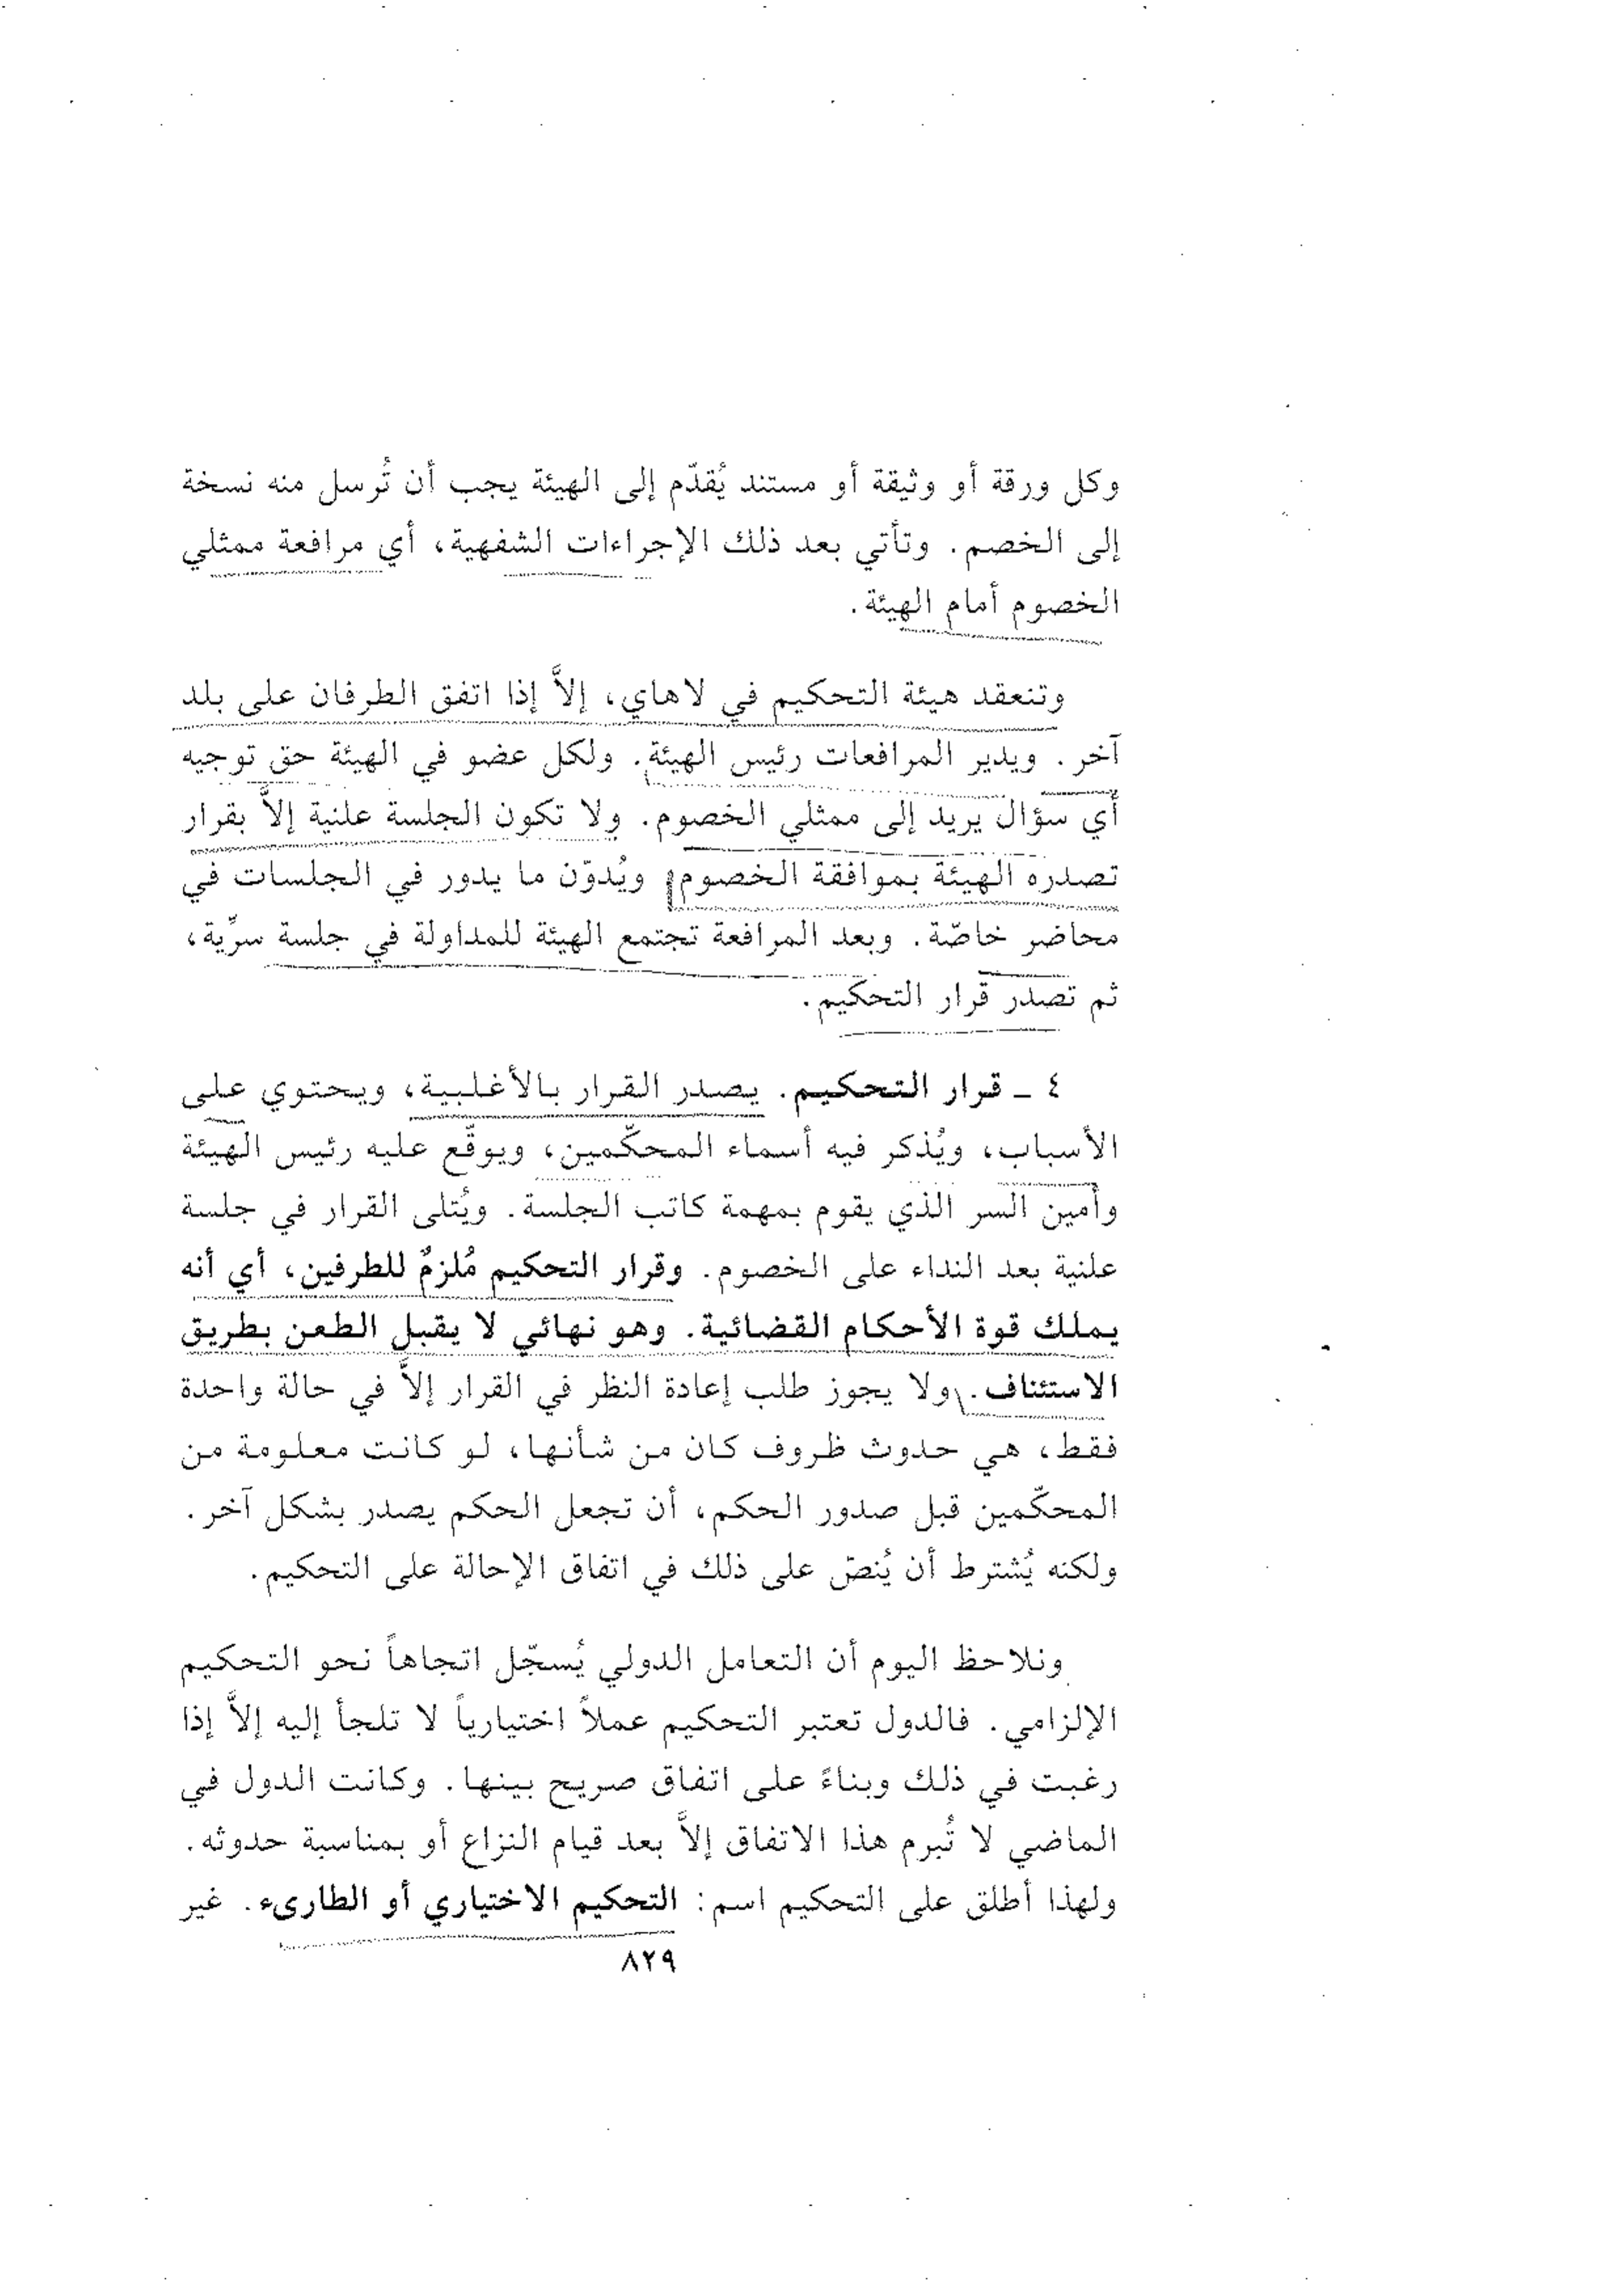 وكل ورقة أو وثيقة أو مستند يُقدّم إلى الهيئة يجب أن تُرسل منه نسخة
إلى الخصم. وتأتي بعد ذلك الإجراءات الشفهية، أي مرافعة ممثلي
الخصوم أمام الهيئة.
وتنعقد هيئة التحكيم في لاهاي، إلاَّ إذا اتفق الطرفان على بلد
آخر. ويدير المرافعات رئيس الهيئة. ولكل عضو في الهيئة حق توجيه
أي سؤال يريد إلى ممثلي الخصوم. ولا تكون الجلسة علنية إلاَّ بقرار
تصدره الهيئة بموافقة الخصوم. ويُدوّن ما يدور في الجلسات في
محاضر خاصّة. وبعد المرافعة تجتمع الهيئة للمداولة في جلسة سرِّية،
ثم تصدر قرار التحكيم.
٤ ـ قرار التحكيم. يصدر القرار بالأغلبية، ويحتوي على
الأسباب، ويُذكر فيه أسماء المحكّمين، ويوقّع عليه رئيس الهيئة
وأمين السر الذي يقوم بمهمة كاتب الجلسة. ويُتلى القرار في جلسة
علنية بعد النداء على الخصوم. وقرار التحكيم مُلزمٌ للطرفين، أي أنه
يملك قوة الأحكام القضائية. وهو نهائي لا يقبل الطعن بطريق
الاستئناف. ولا يجوز طلب إعادة النظر في القرار إلاَّ في حالة واحدة
فقط، هي حدوث ظروف كان من شأنها، لو كانت معلومة من
المحكّمين قبل صدور الحكم، أن تجعل الحكم يصدر بشكل آخر.
ولكنه يُشترط أن يُنصّ على ذلك في اتفاق الإحالة على التحكيم.
ونلاحظ اليوم أن التعامل الدولي يُسجّل اتجاهاً نحو التحكيم
الإلزامي. فالدول تعتبر التحكيم عملاً اختيارياً لا تلجأ إليه إلاَّ إذا
رغبت في ذلك وبناءً على اتفاق صريح بينها. وكانت الدول في
الماضي لا تُبرم هذا الاتفاق إلاَّ بعد قيام النزاع أو بمناسبة حدوثه.
ولهذا أطلق على التحكيم اسم: التحكيم الاختياري أو الطارىء. غير
٨٢٩